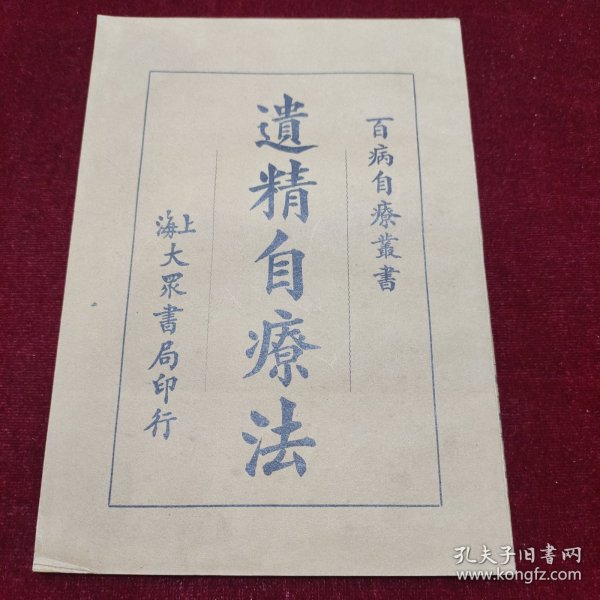 百病自療叢書
遺精自療法
上海大眾書局印行
孔夫子旧書网
www.kongfz.com